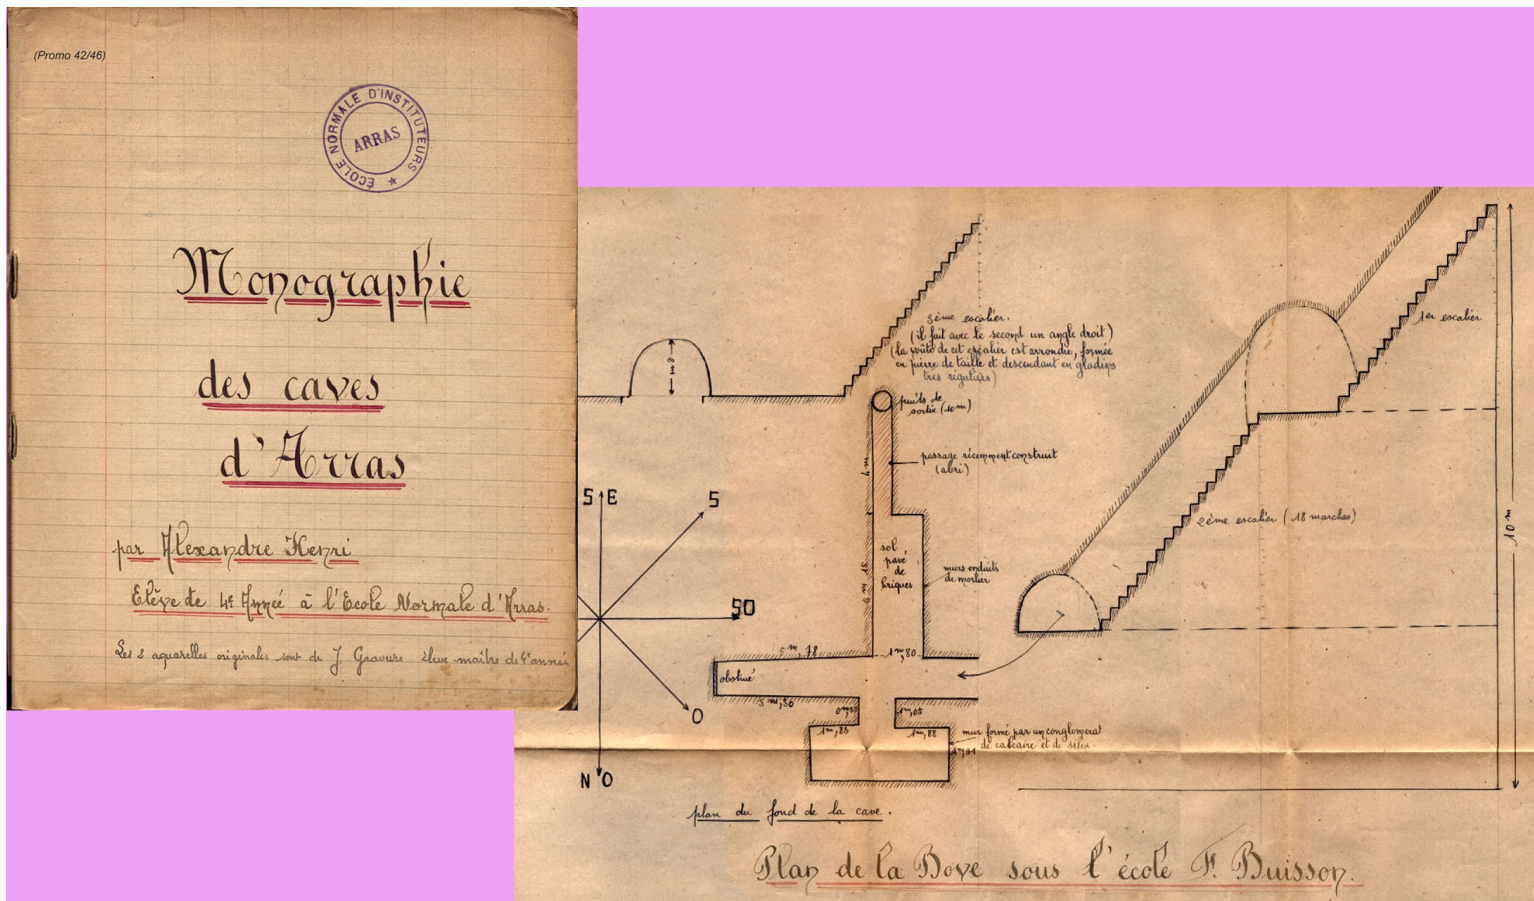 (Promo 42/46)
ÉCOLE NORMALE D'INSTITUTEURS
ARRAS
Monographie
des caves
d'Arras
par Alexandre Henri
Elève de 4e Année à l'Ecole Normale d'Arras.
Les 2 aquarelles originales sont de J. Gravure élève maître de 4e année
3ème escalier.
(il fait avec le second un angle droit)
(la voûte de cet escalier est arrondie, formée
en pierre de taille et descendant en gradins
très réguliers)
1er escalier
puits de
sortie (10m)
passage récemment construit
(abri)
4 m
2ème escalier (18 marches)
10 m
S E
S
SO
O
N O
sol
pavé
de
briques
murs enduits
de mortier
5m,78
1m,80
obstrué
1m,05
1m,88
mur formé par un conglomérat
de calcaire et de silex.
plan du fond de la cave.
Plan de la Bove sous l'école F. Buisson.